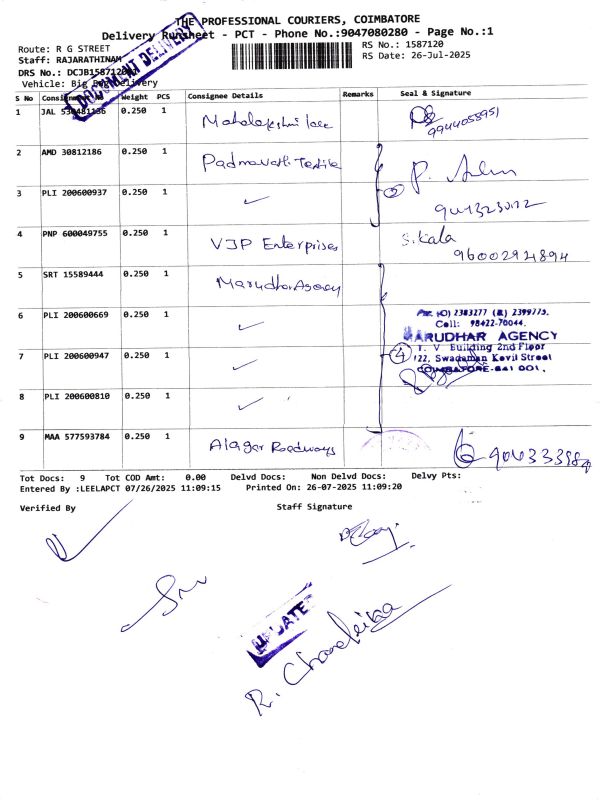 THE PROFESSIONAL COURIERS, COIMBATORE
Delivery Runsheet - PCT - Phone No.:9047080280 - Page No.:1
Route: R G STREET
RS No.: 1587120
Staff: RAJARATHINAM
RS Date: 26-Jul-2025
DRS No.: DCJB1587120
Vehicle: Big Delivery
DOCUMENT DELIVERY
S No Weight PCS Consignee Details Remarks Seal & Signature
1 JAL 0.250 1 Mahalakshmi lace
9944058951
2 AMD 30812186 0.250 1 Padmavathi Textile
3 PLI 200600937 0.250 1 ✓ 2
4 PNP 600049755 0.250 1 VJP Enterprises S. Kala
96002924894
5 SRT 15589444 0.250 1 Marudhar Agency
6 PLI 200600669 0.250 1 ✓
(O) 2383277 (R) 2399775.
Cell: 98422-70044.
MARUDHAR AGENCY
7 PLI 200600947 0.250 1 ✓ 4
T. V Building 2nd Floor
122, Swadaman Kovil Street
COIMBATORE-641 001.
8 PLI 200600810 0.250 1 ✓
9 MAA 577593784 0.250 1 Alagar Roadways
Tot Docs: 9 Tot COD Amt: 0.00 Delvd Docs: Non Delvd Docs: Delvy Pts:
Entered By :LEELAPCT 07/26/2025 11:09:15 Printed On: 26-07-2025 11:09:20
Verified By Staff Signature
UPDATED
R. Chandrika